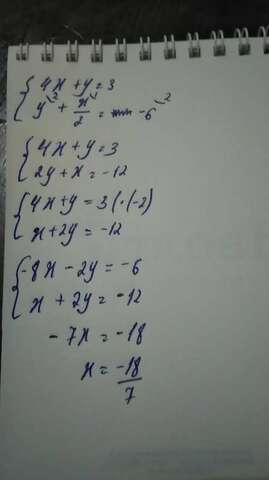 4x + y = 3
y² + x/2 = -6²
4x + y = 3
2y + x = -12
4x + y = 3 | · (-2)
x + 2y = -12
-8x - 2y = -6
x + 2y = -12
- 7x = -18
x = -18/7